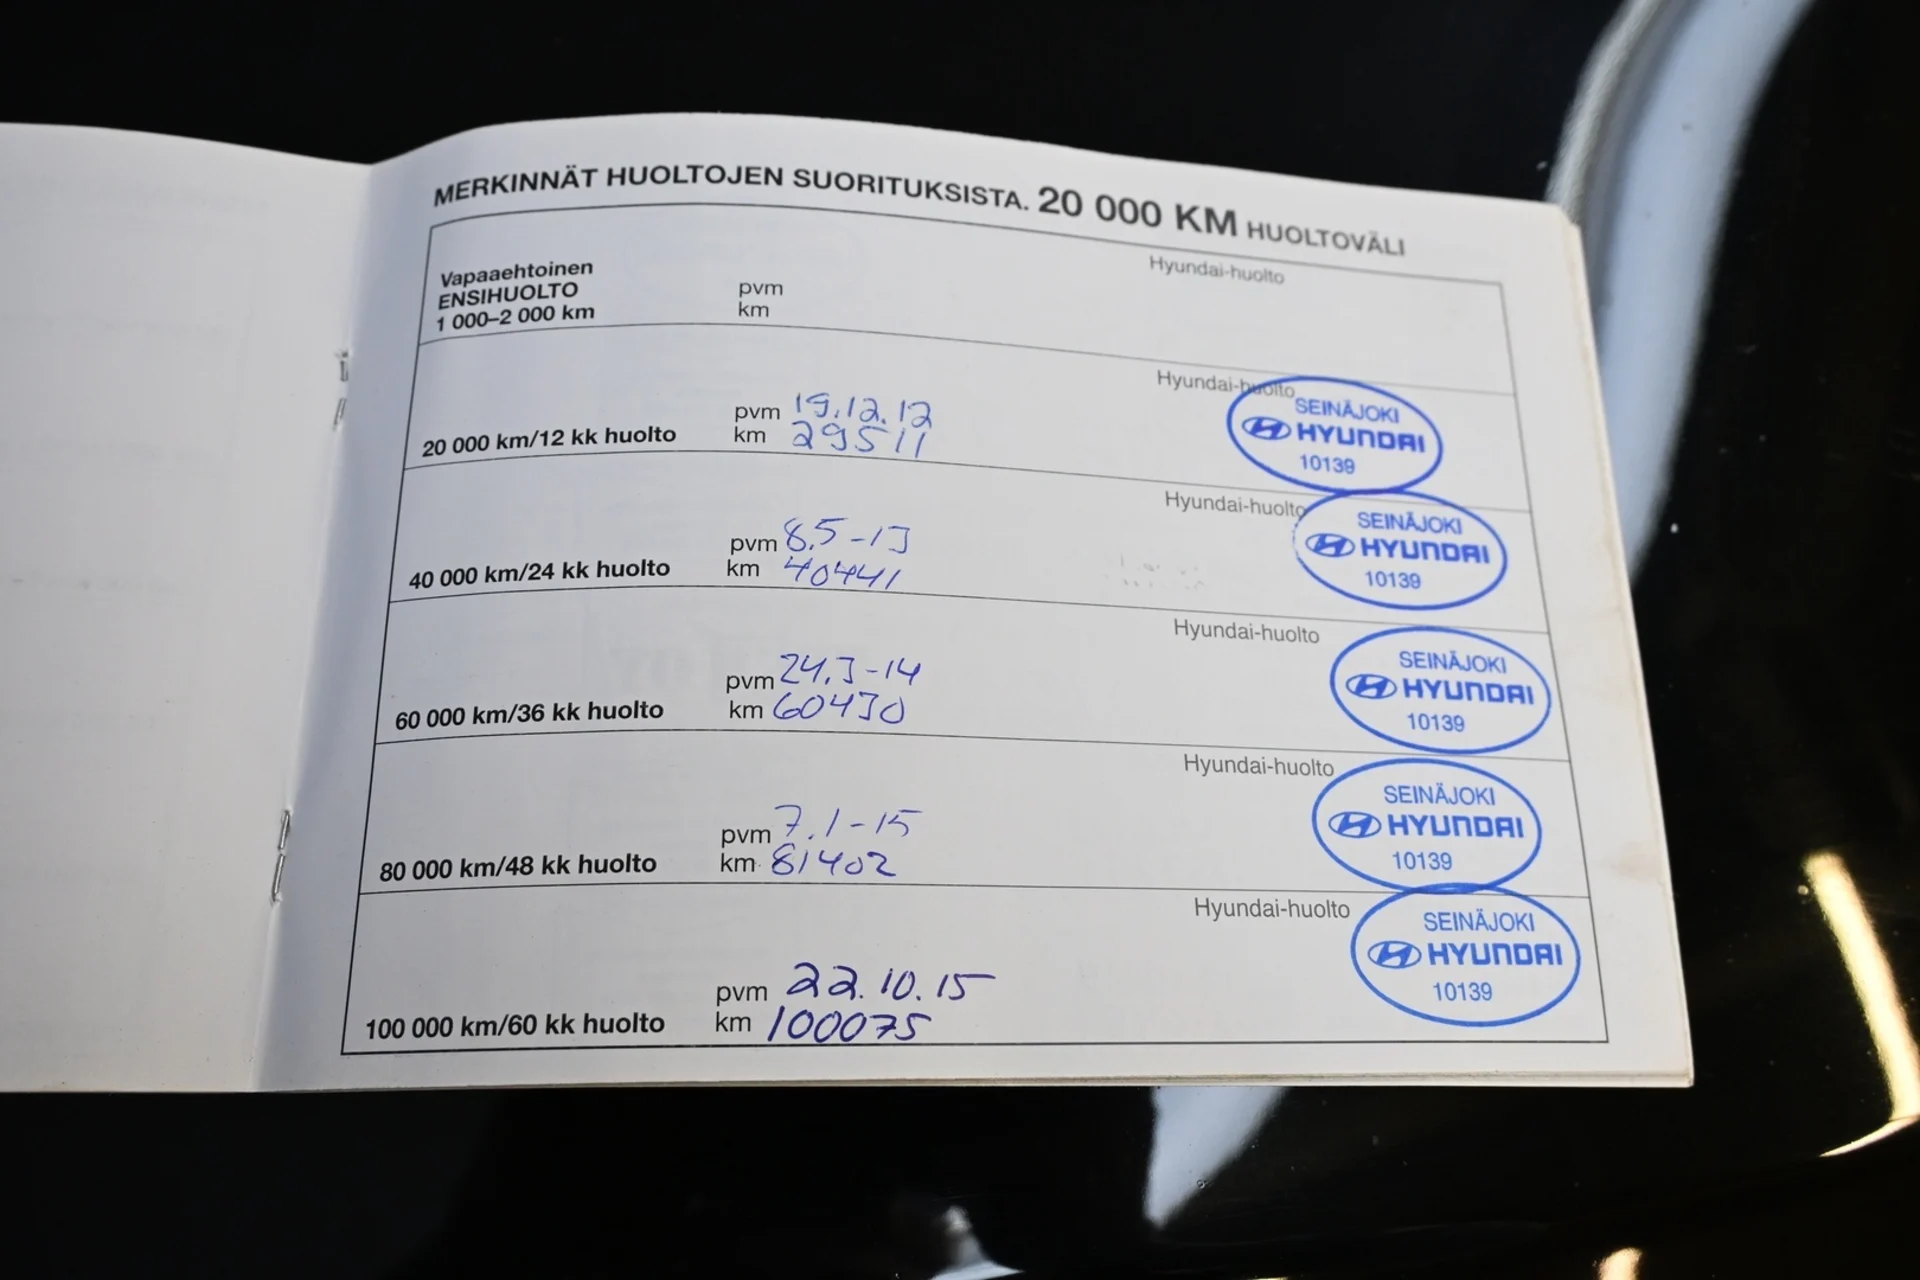 MERKINNÄT HUOLTOJEN SUORITUKSISTA. 20 000 KM HUOLTOVÄLI
Vapaaehtoinen
ENSIHUOLTO
1 000–2 000 km
pvm
km
Hyundai-huolto
20 000 km/12 kk huolto
pvm 19.12.12
km 29511
Hyundai-huolto
SEINÄJOKI
HYUNDAI
10139
40 000 km/24 kk huolto
pvm 8.5-13
km 40441
Hyundai-huolto
SEINÄJOKI
HYUNDAI
10139
60 000 km/36 kk huolto
pvm 24.3-14
km 60430
Hyundai-huolto
SEINÄJOKI
HYUNDAI
10139
80 000 km/48 kk huolto
pvm 7.1-15
km 81402
Hyundai-huolto
SEINÄJOKI
HYUNDAI
10139
100 000 km/60 kk huolto
pvm 22.10.15
km 100075
Hyundai-huolto
SEINÄJOKI
HYUNDAI
10139